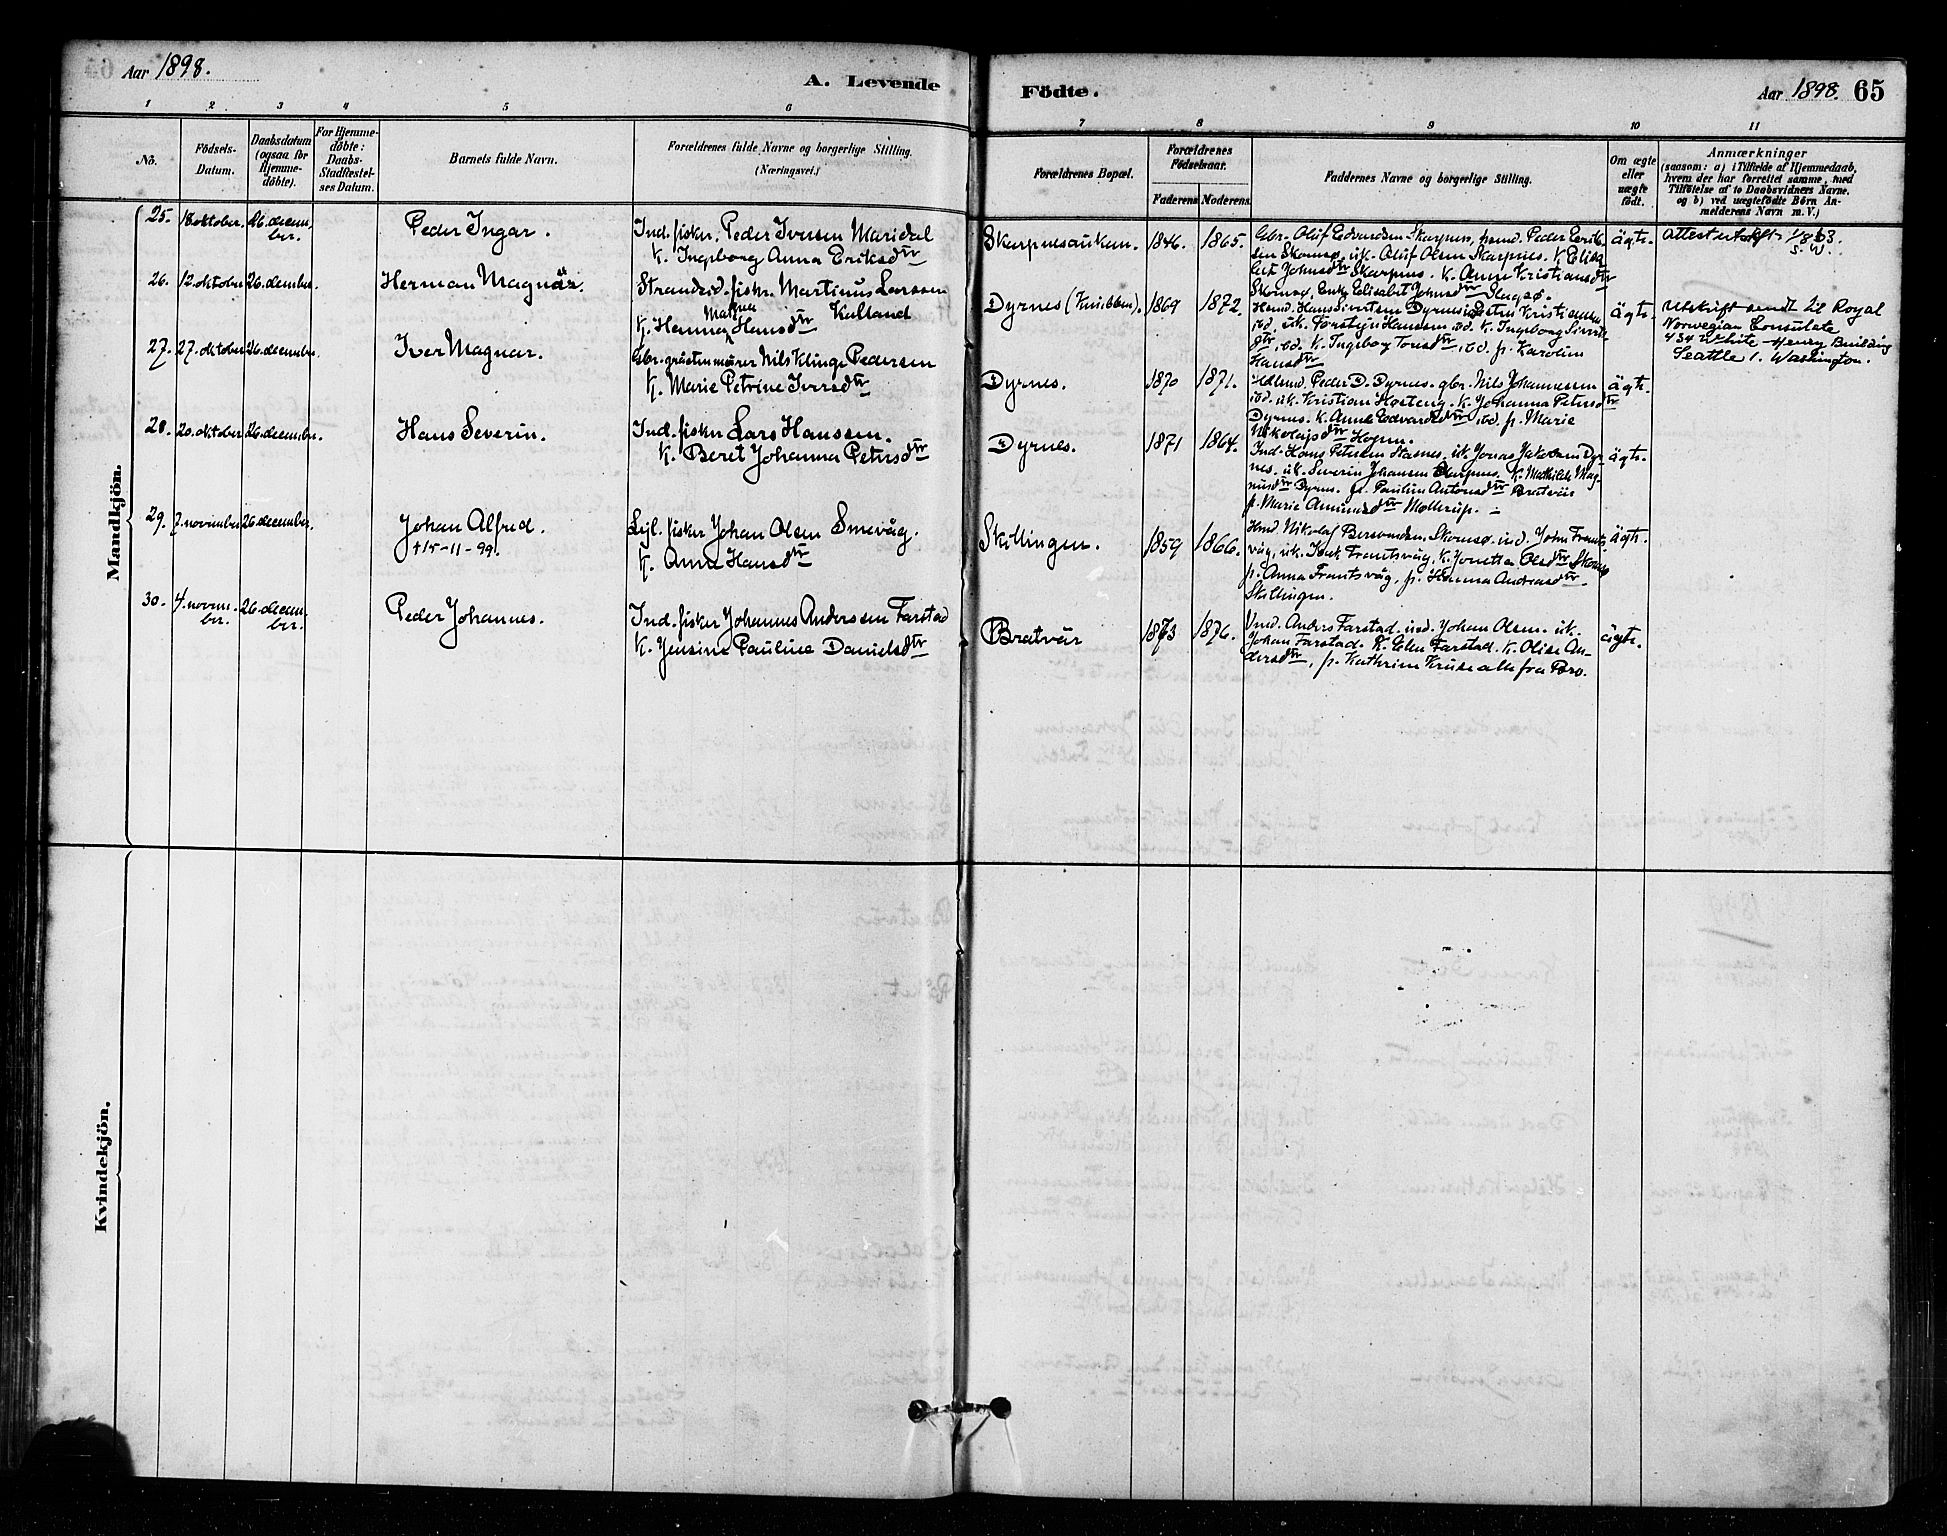 Aar 1898.
A. Levende
Födte.
Aar 1898. 65
1 2 3 4 5 6
7 8 9 10 11
No.
Födsels-
Datum.
Daabsdatum
(ogsaa for
Hjemme-
döbte).
For Hjemme-
döbte:
Daabs-
Stadfæstel-
ses Datum.
Barnets fulde Navn.
Forældrenes fulde Navne og borgerlige Stilling.
(Næringsvei.)
Forældrenes Bopæl.
Forældrenes
Födselsaar.
Faderens Moderens
Faddernes Navne og borgerlige Stilling.
Om ægte
eller
uægte
födt.
Anmærkninger
(saasom: a) i Tilfælde af Hjemmedaab,
hvem der har forrettet samme, med
Tilföielse af to Daabsvidners Navne,
og b) ved uægtefödte Börn An-
melderens Navn m. V.)
Mandkjön.
25. 18 oktober. 26. decem-
ber.
Peder Ingar.
Ind. fisker. Peder Iversen Maridal
K. Ingeborg Anna Eriksdtr
1846. 1865.
Gbr. Oluf Edvardsen Skarpnes, Peder Erik-
sen Skomsø, uk. Oluf Olsen Skarpnes. K. Elisa-
bet Johnsdtr Skarpnes. K. Anne Kristiansdtr
Skomsø, Enke Elisabet Johnsdtr
ägte.
Attest utskrift 1/8 63.
26. 12. oktober 26. december.
Herman Magnär.
Strandsid. fiskr. Martinus Larssen
Kalland
K. Hanna Hansdtr
Dyrnes (Knubben). 1869 1872.
ägte.
Utskrift sendt til Royal
Norwegian Consulate
434 White-Henry Building
Seattle 1. Washington.
27. 27. oktober 26. december.
Iver Magnar.
Gbr. gråstensmurer Nils Klinge Pedersen
K. Marie Petrine Iversdtr
Dyrnes. 1870 1871.
Peder D. Dyrnes. gbr. Nils Johannessen
ibd. uk. Kristian Høsteng. K. Johanna Petersdtr
Dyrnes. K. Anne Edvardsdtr ibd. p. Marie
Nikolajsdtr Hopen.
ägte.
28. 20. oktober 26. december.
Hans Severin.
Ind. fisker Lars Hanssen.
K. Beret Johanna Petersdtr
Dyrnes. 1871 1864.
Ind. Hans Petersen Stasnes, uk. Jonas Jakobsen Dyr-
nes. uk. Severin Johansen Skarpnes. K. Mathilde Mag-
nusdtr Dyrnes. p. Pauline Antonsdtr Bratvär
p. Marie Amundsdtr Møllerup.
ägte.
29. 7. november 26 december.
Johan Alfred.
†15-11-99.
Lejl. fisker Johan Olsen Smevåg.
K. Anna Hansdtr
Skillingen. 1859 1866.
Nikolaj Berntsen, Skomsø. ind. John Frants-
våg, uk. Frantsvåg, K. Jonetta Olsdtr Skomsø
p. Anna Frantsvåg, p. Hanna Andreasdtr
Skillingen.
ägte.
30. 4. novem-
ber. 26. decem-
ber.
Peder Johannes.
Ind. fisker Johannes Anderssen Farstad
K. Jensine Pauline Danielsdtr
Bratvär 1873 1876.
Anders Farstad. ind. Johan Olsen. uk.
Johan Farstad. K. Elen Farstad. K. Olise An-
dersdtr, p. Kathrine Kruse alle fra Brv.
ägte.
Kvindekjön.